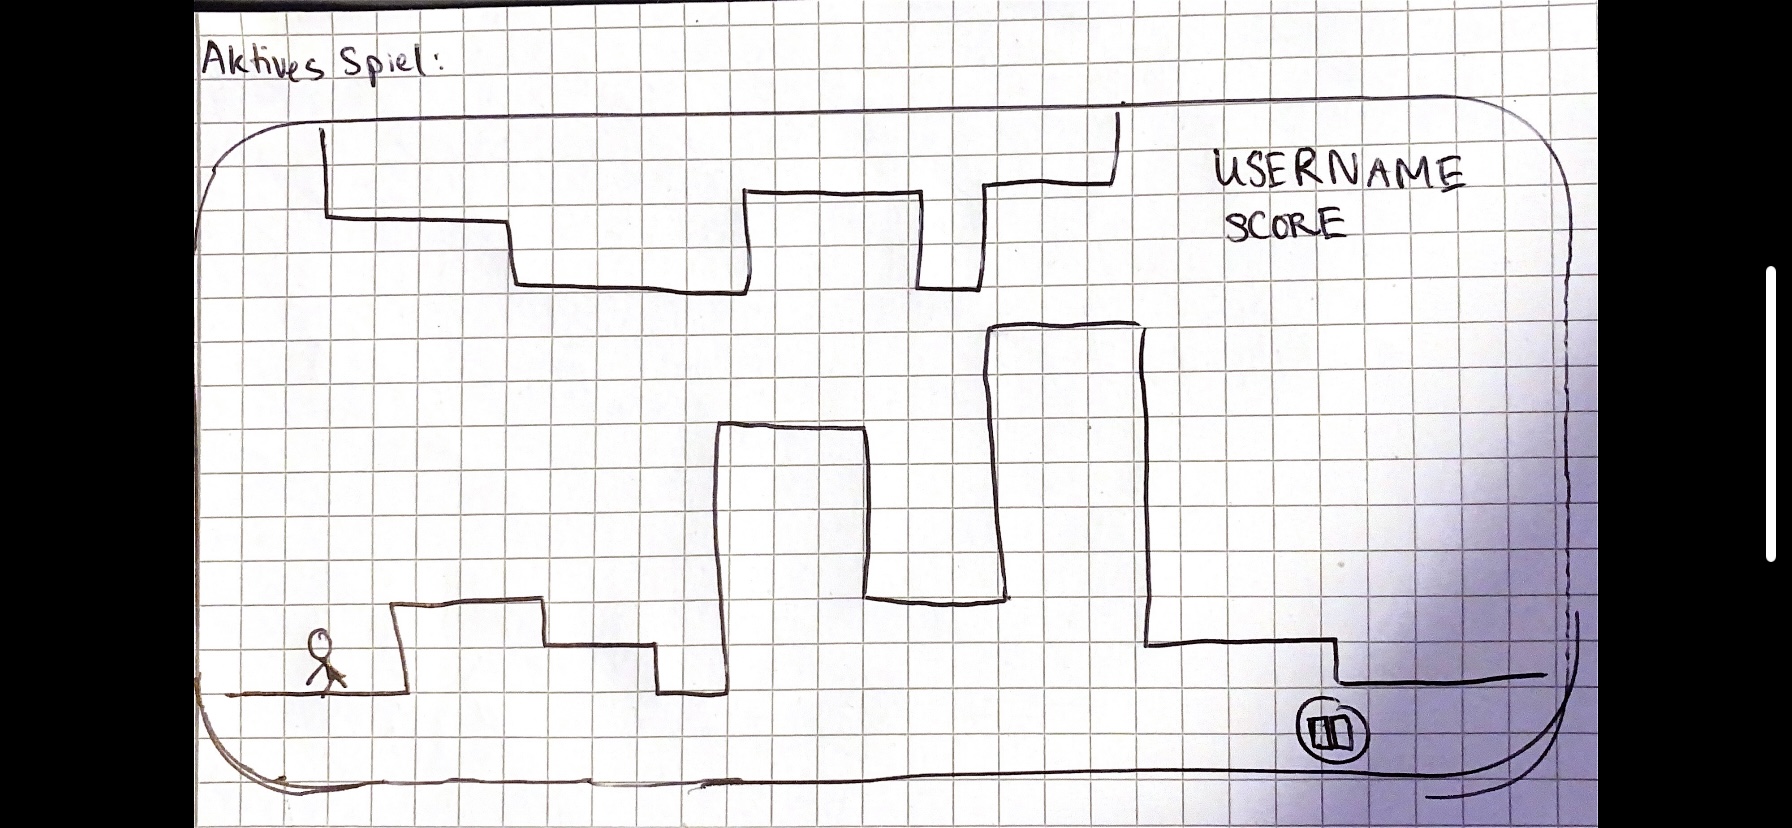 Aktives Spiel:
USERNAME
SCORE